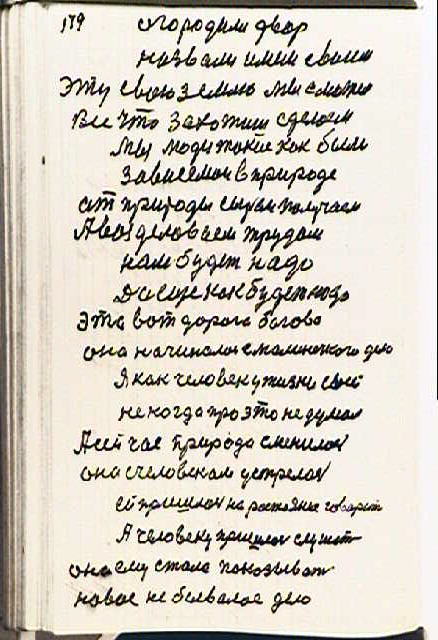 179
огородили двор
назвали имем своим
Эту свою землю мы сможем
Все что захотим сделаем
Мы люди такие как были
зависемои в природе
от природы сырьем получаем
А воз деловаем трудом
нам будет надо
Да еще как будет надо
Это вот дорога богова
она начиналас с маленького дело
Я как человек у жизни своей
некогда про это не думал
А сей час природа сменилоя
она с человеком устрелоя
ей пришлоя на растояние говорит
А человеку пришлоя слушат
она ему стала показыват
новое не бывалое дело